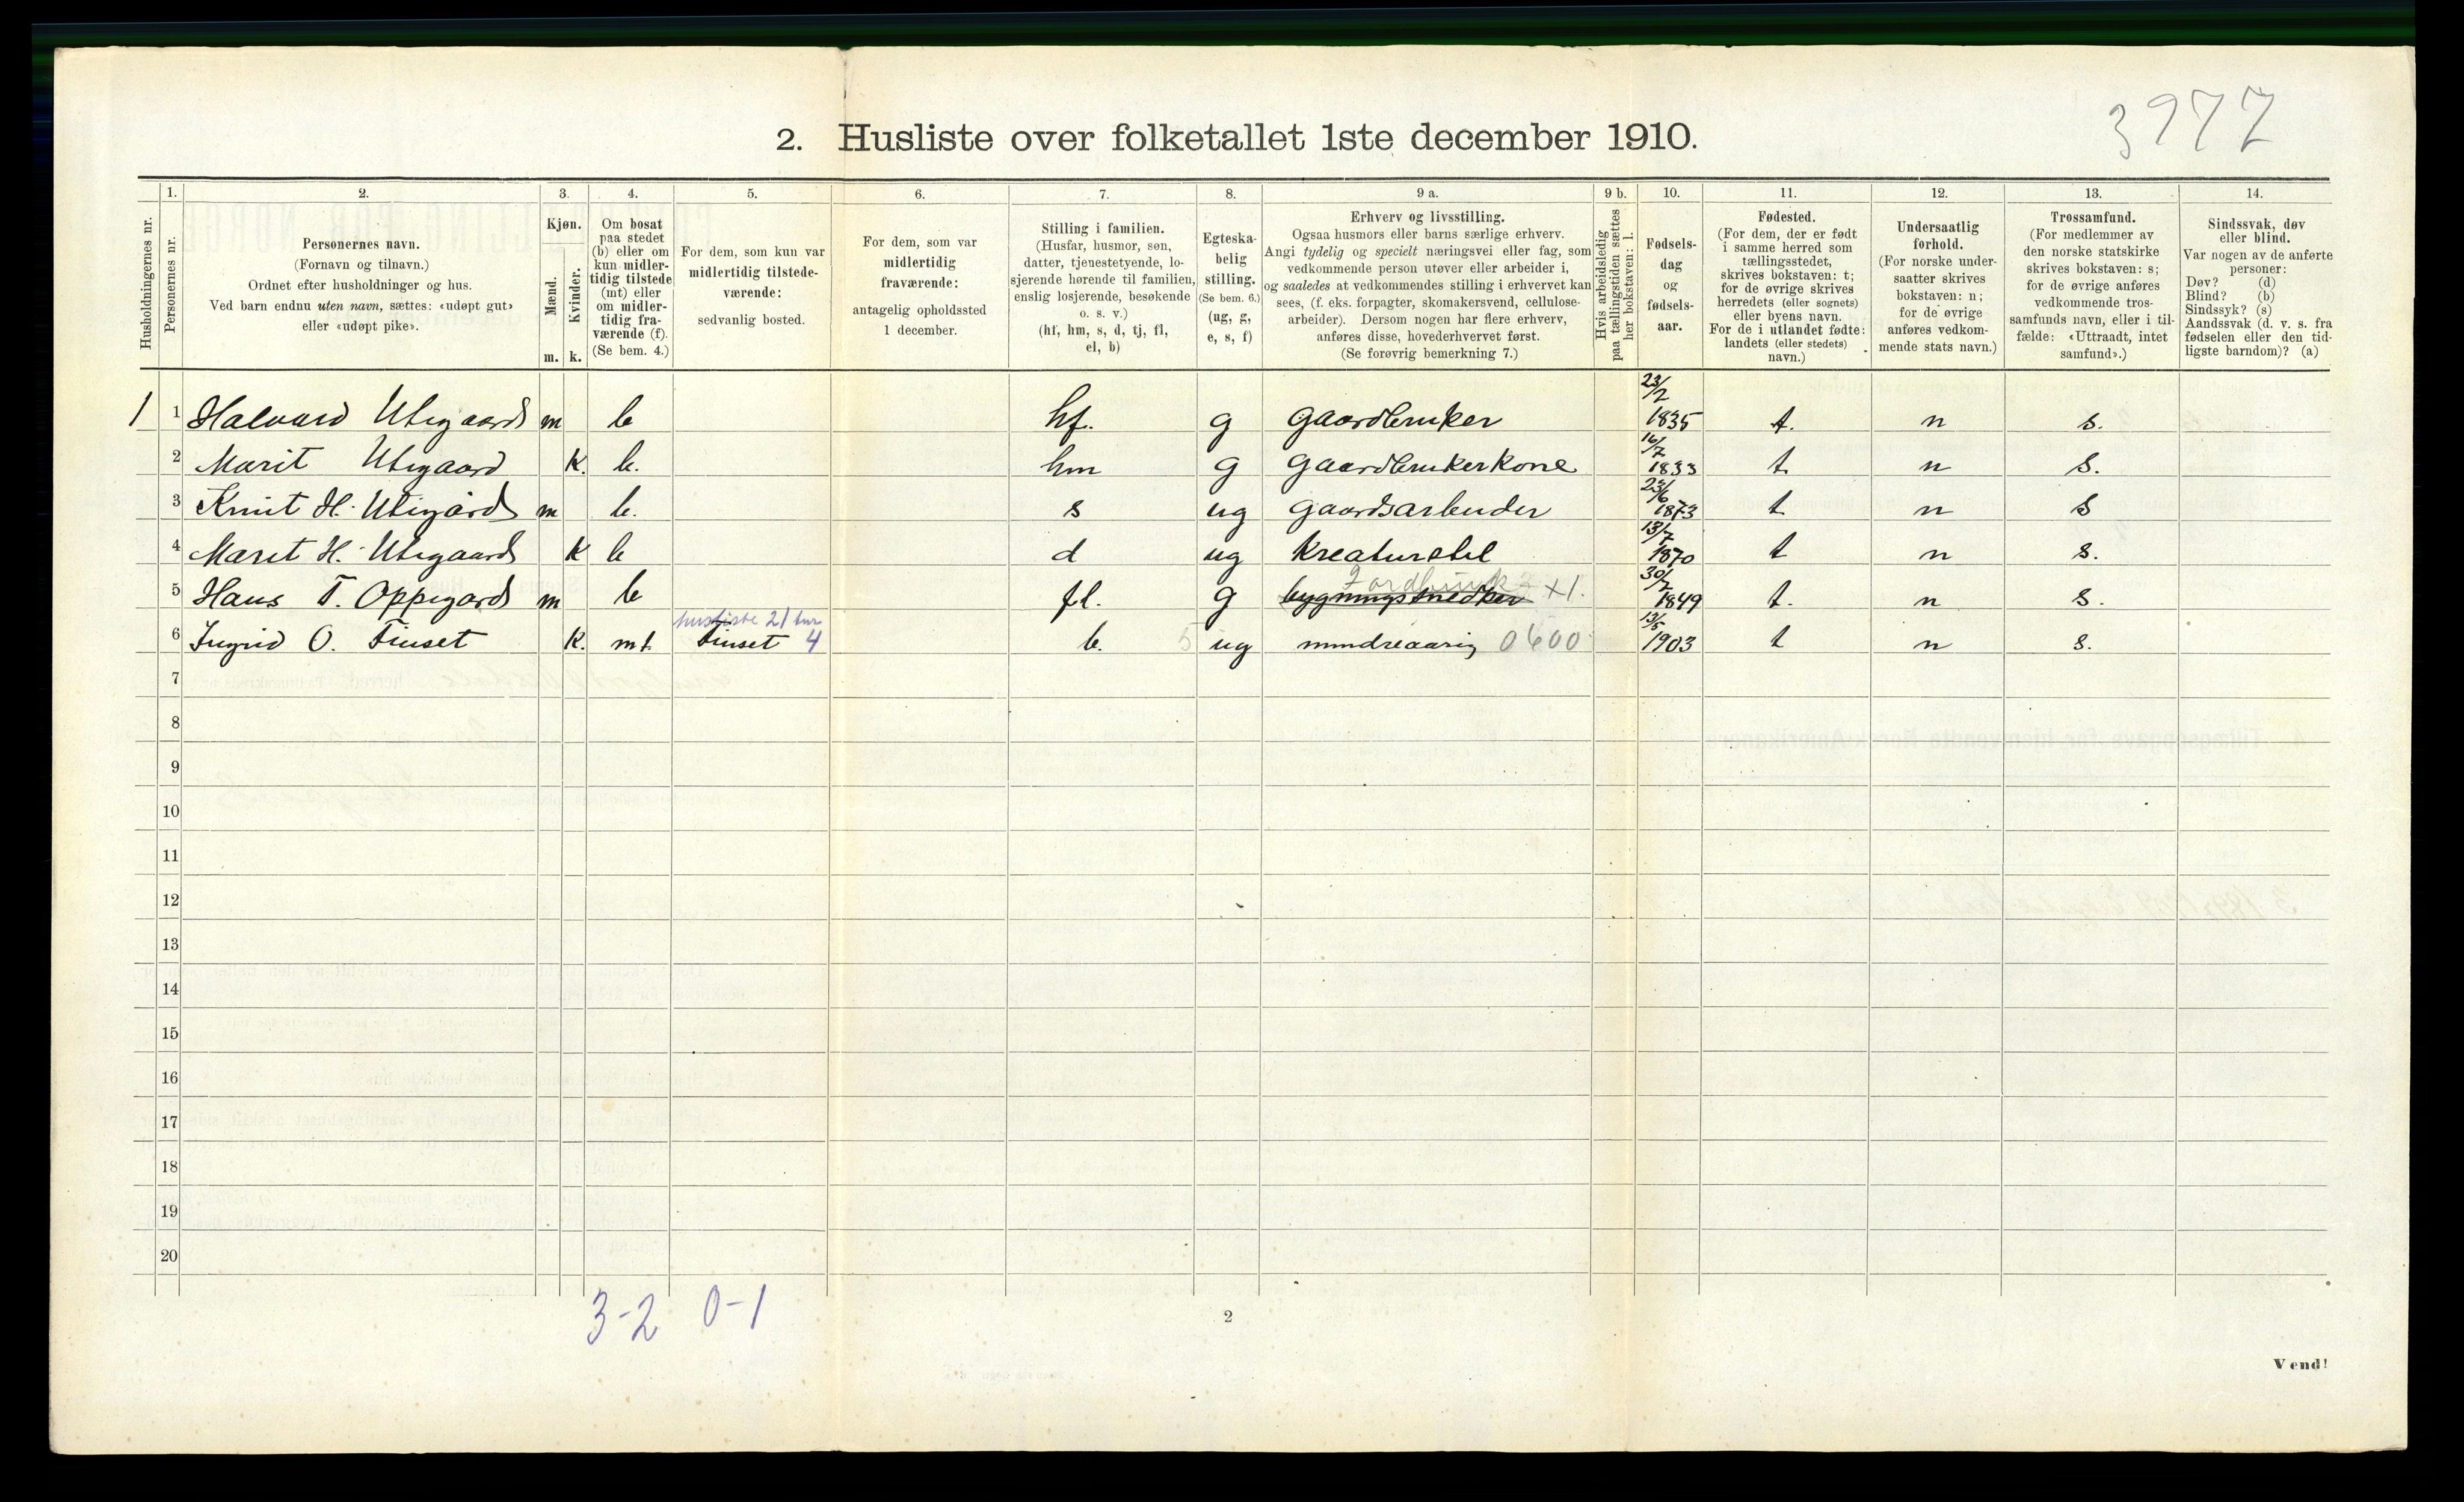 3977
2. Husliste over folketallet 1ste december 1910.
1. 2. 3. 4. 5. 6. 7. 8. 9 a. 9 b. 10. 11. 12. 13. 14.
Husholdningernes nr.
Personernes nr.
Personernes navn.
(Fornavn og tilnavn.)
Ordnet efter husholdninger og hus.
Ved barn endnu uten navn, sættes: «udøpt gut»
eller «udøpt pike».
Kjøn.
Mænd.
Kvinder.
m. k.
Om bosat
paa stedet
(b) eller om
kun midler-
tidig tilstede
(mt) eller
om midler-
tidig fra-
værende (f).
(Se bem. 4.)
For dem, som kun var
midlertidig tilstede-
værende:
sedvanlig bosted.
For dem, som var
midlertidig
fraværende:
antagelig opholdssted
1 december.
Stilling i familien.
(Husfar, husmor, søn,
datter, tjenestetyende, lo-
sjerende hørende til familien,
enslig losjerende, besøkende
o. s. v.)
(hf, hm, s, d, tj, fl,
el, b)
Egteska-
belig
stilling.
(Se bem. 6.)
(ug, g,
e, s, f)
Erhverv og livsstilling.
Ogsaa husmors eller barns særlige erhverv.
Angi tydelig og specielt næringsvei eller fag, som
vedkommende person utøver eller arbeider i,
og saaledes at vedkommendes stilling i erhvervet kan
sees, (f. eks. forpagter, skomakersvend, cellulose-
arbeider). Dersom nogen har flere erhverv,
anføres disse, hovederhvervet først.
(Se forøvrig bemerkning 7.)
Hvis arbeidsledig
paa tællingstiden sættes
her bokstaven: l.
Fødsels-
dag
og
fødsels-
aar.
Fødested.
(For dem, der er født
i samme herred som
tællingsstedet,
skrives bokstaven: t;
for de øvrige skrives
herredets (eller sognets)
eller byens navn.
For de i utlandet fødte:
landets (eller stedets)
navn.)
Undersaatlig
forhold.
(For norske under-
saatter skrives
bokstaven: n;
for de øvrige
anføres vedkom-
mende stats navn.)
Trossamfund.
(For medlemmer av
den norske statskirke
skrives bokstaven: s;
for de øvrige anføres
vedkommende tros-
samfunds navn, eller i til-
fælde: «Uttraadt, intet
samfund».)
Sindssvak, døv
eller blind.
Var nogen av de anførte
personer:
Døv? (d)
Blind? (b)
Sindssyk? (s)
Aandssvak (d. v. s. fra
fødselen eller den tid-
ligste barndom)? (a)
1 1 Halvard Utigaard m b hf. g gaardbruker 23/2 1835 t. n s.
2 Marit Utigaard k. b. hm g gaardbrukerkone 16/7 1833 t. n s.
3 Knut H. Utigård m b. s ug gaardsarbeider 23/6 1873 t n s
4 Marit H. Utigaard k b d ug kreaturstel 13/7 1870 t n s.
5 Hans T. Oppegard m b fl. g bygningssnedker Jordbruk x 1. 30/7 1849 t. n s.
6 Ingrid O. Tinset k. mt. husliste 21 Tinset 4 b. 5 ug mindreaarig 0600 13/5 1903 t n s.
7
8
9
10
11
12
13
14
15
16
17
18
19
20
3-2 0-1
2
Vend!